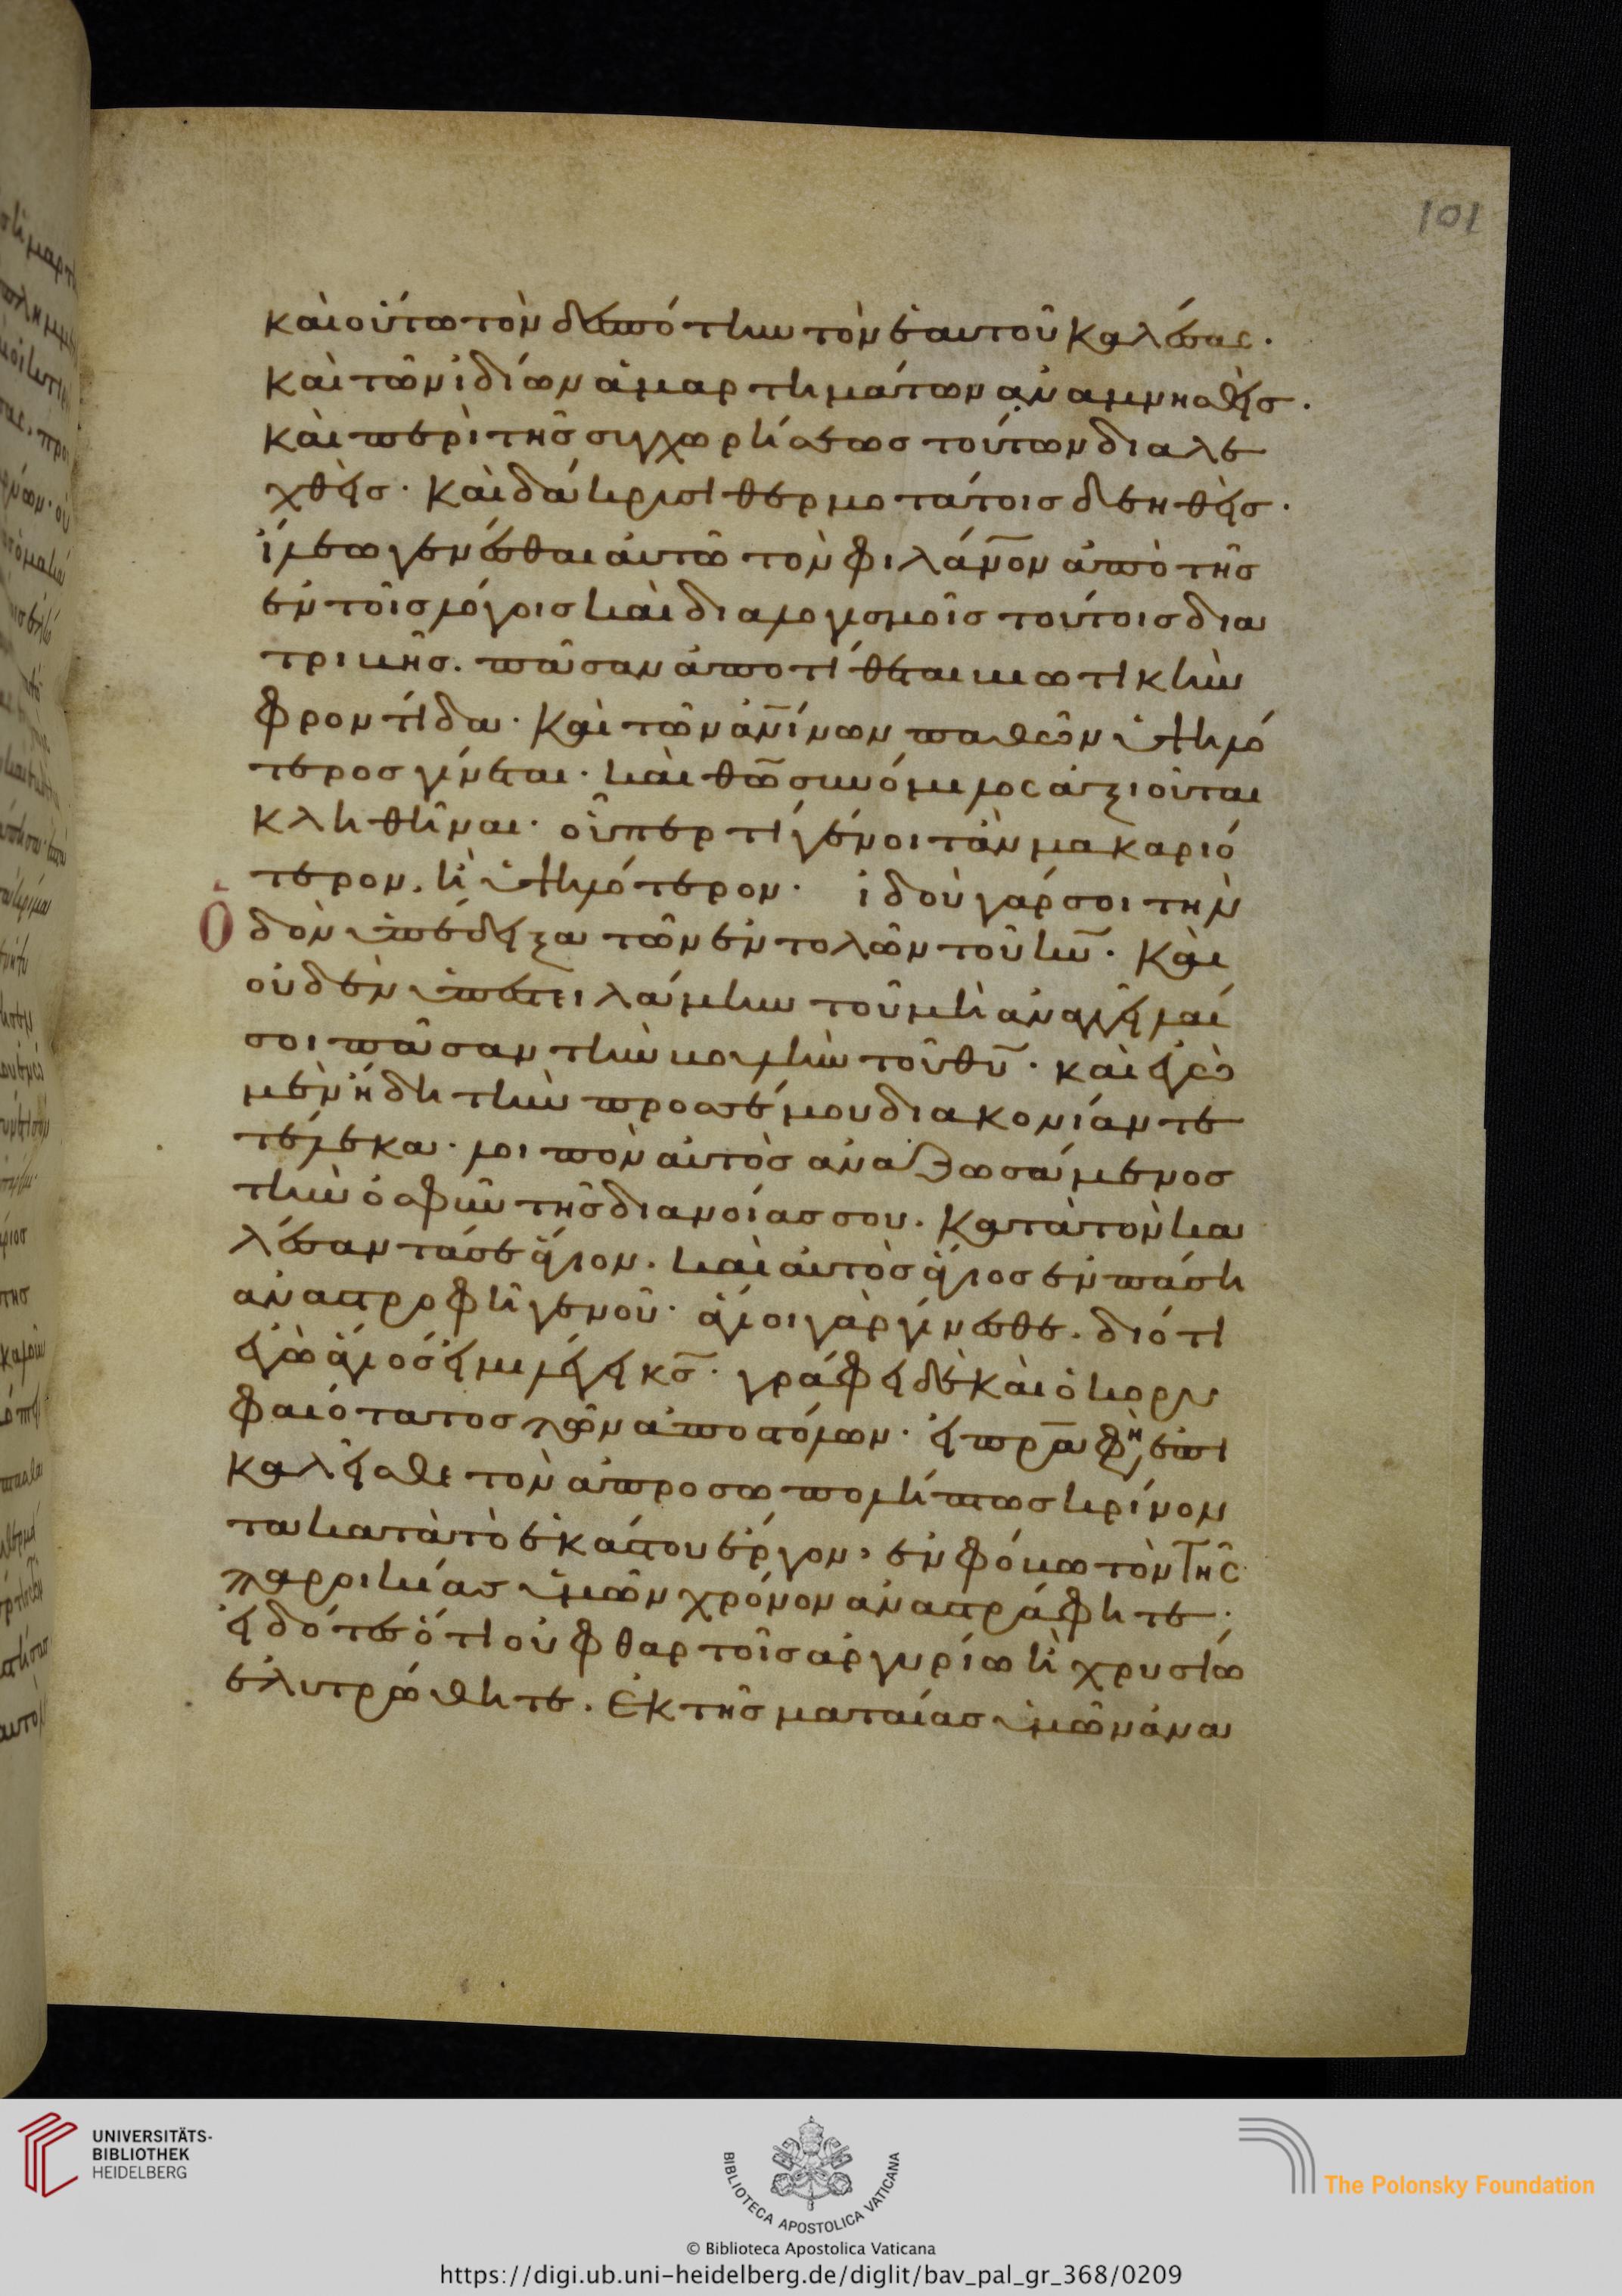 101
καὶ οὕτω τὸν δεσπότην τὸν ἑαυτοῦ καλέσας.
καὶ τῶν ἰδίων ἁμαρτημάτων ἀναμνησθεὶς.
καὶ περὶ τῆς συγχωρήσεως τούτων διαλε
χθεὶς. καὶ δάκρυσι θερμοτάτοις δεηθεὶς.
ἵλεω γενέσθαι αὐτῶ τὸν φιλάν̅ον ἀπὸ τῆς
ἐν τοῖς λόγοις καὶ διαλογισμοῖς τούτοις δια
τριβῆς. πᾶσαν ἀποτίθεται βιωτικὴν
φροντίδα. καὶ τῶν ἀν̅ίνων παθῶν ὑψηλό
τερος γίνεται. καὶ θῶ̅ συνόμιλος ἀξιοῦται
κληθῆναι. οὗπερ τί γένοιτ ἂν μακαριό
τερον. ἢ ὑψηλότερον. ἰδοὺ γάρ σοι τὴν
ὁδὸν ὑπέδειξα τῶν ἐντολῶν τοῦ κυ̅. καὶ
οὐδὲν ὑπεστειλάμην τοῦ μὴ ἀναγγεῖλαί
σοι πᾶσαν τὴν βουλὴν τοῦ θυ̅. καὶ ἐγὼ
μὲν ἤδη τὴν πρὸς σέ μου διακονίαν τε
τέλεκα. λοιπὸν αὐτὸς ἀναζωσάμενος
τὴν ὀσφῦν τῆς διανοίας σου. κατὰ τὸν κα
λέσαντά σε ἅγιον. καὶ αὐτὸς ἅγιος ἐν πάσῃ
ἀναστροφῆ γενοῦ. ἅγιοι γὰρ γίνεσθε. διότι
ἐγὼ ἅγιός εἰμι λέγει κς̅. γράφει δὲ καὶ ὁ κορυ
φαιότατος τῶν ἀποστόλων. εἰ πρ̅α φησὶν ἐπι
καλεῖσθε τὸν ἀπροσωπολήπτως κρίνον
τα κατὰ τὸ ἑκάστου ἔργον, ἐν φόβω τὸν τῆς
παροικίας ὑμῶν χρόνον ἀναστράφητε.
εἰδότες ὅτι οὐ φθαρτοῖς ἀργυρίω ἢ χρυσίω
ἐλυτρώθητε. ἐκ τῆς ματαίας ὑμῶν ἀνα
UNIVERSITÄTS-
BIBLIOTHEK
HEIDELBERG
BIBLIOTECA APOSTOLICA VATICANA
The Polonsky Foundation
© Biblioteca Apostolica Vaticana
https://digi.ub.uni-heidelberg.de/diglit/bav_pal_gr_368/0209